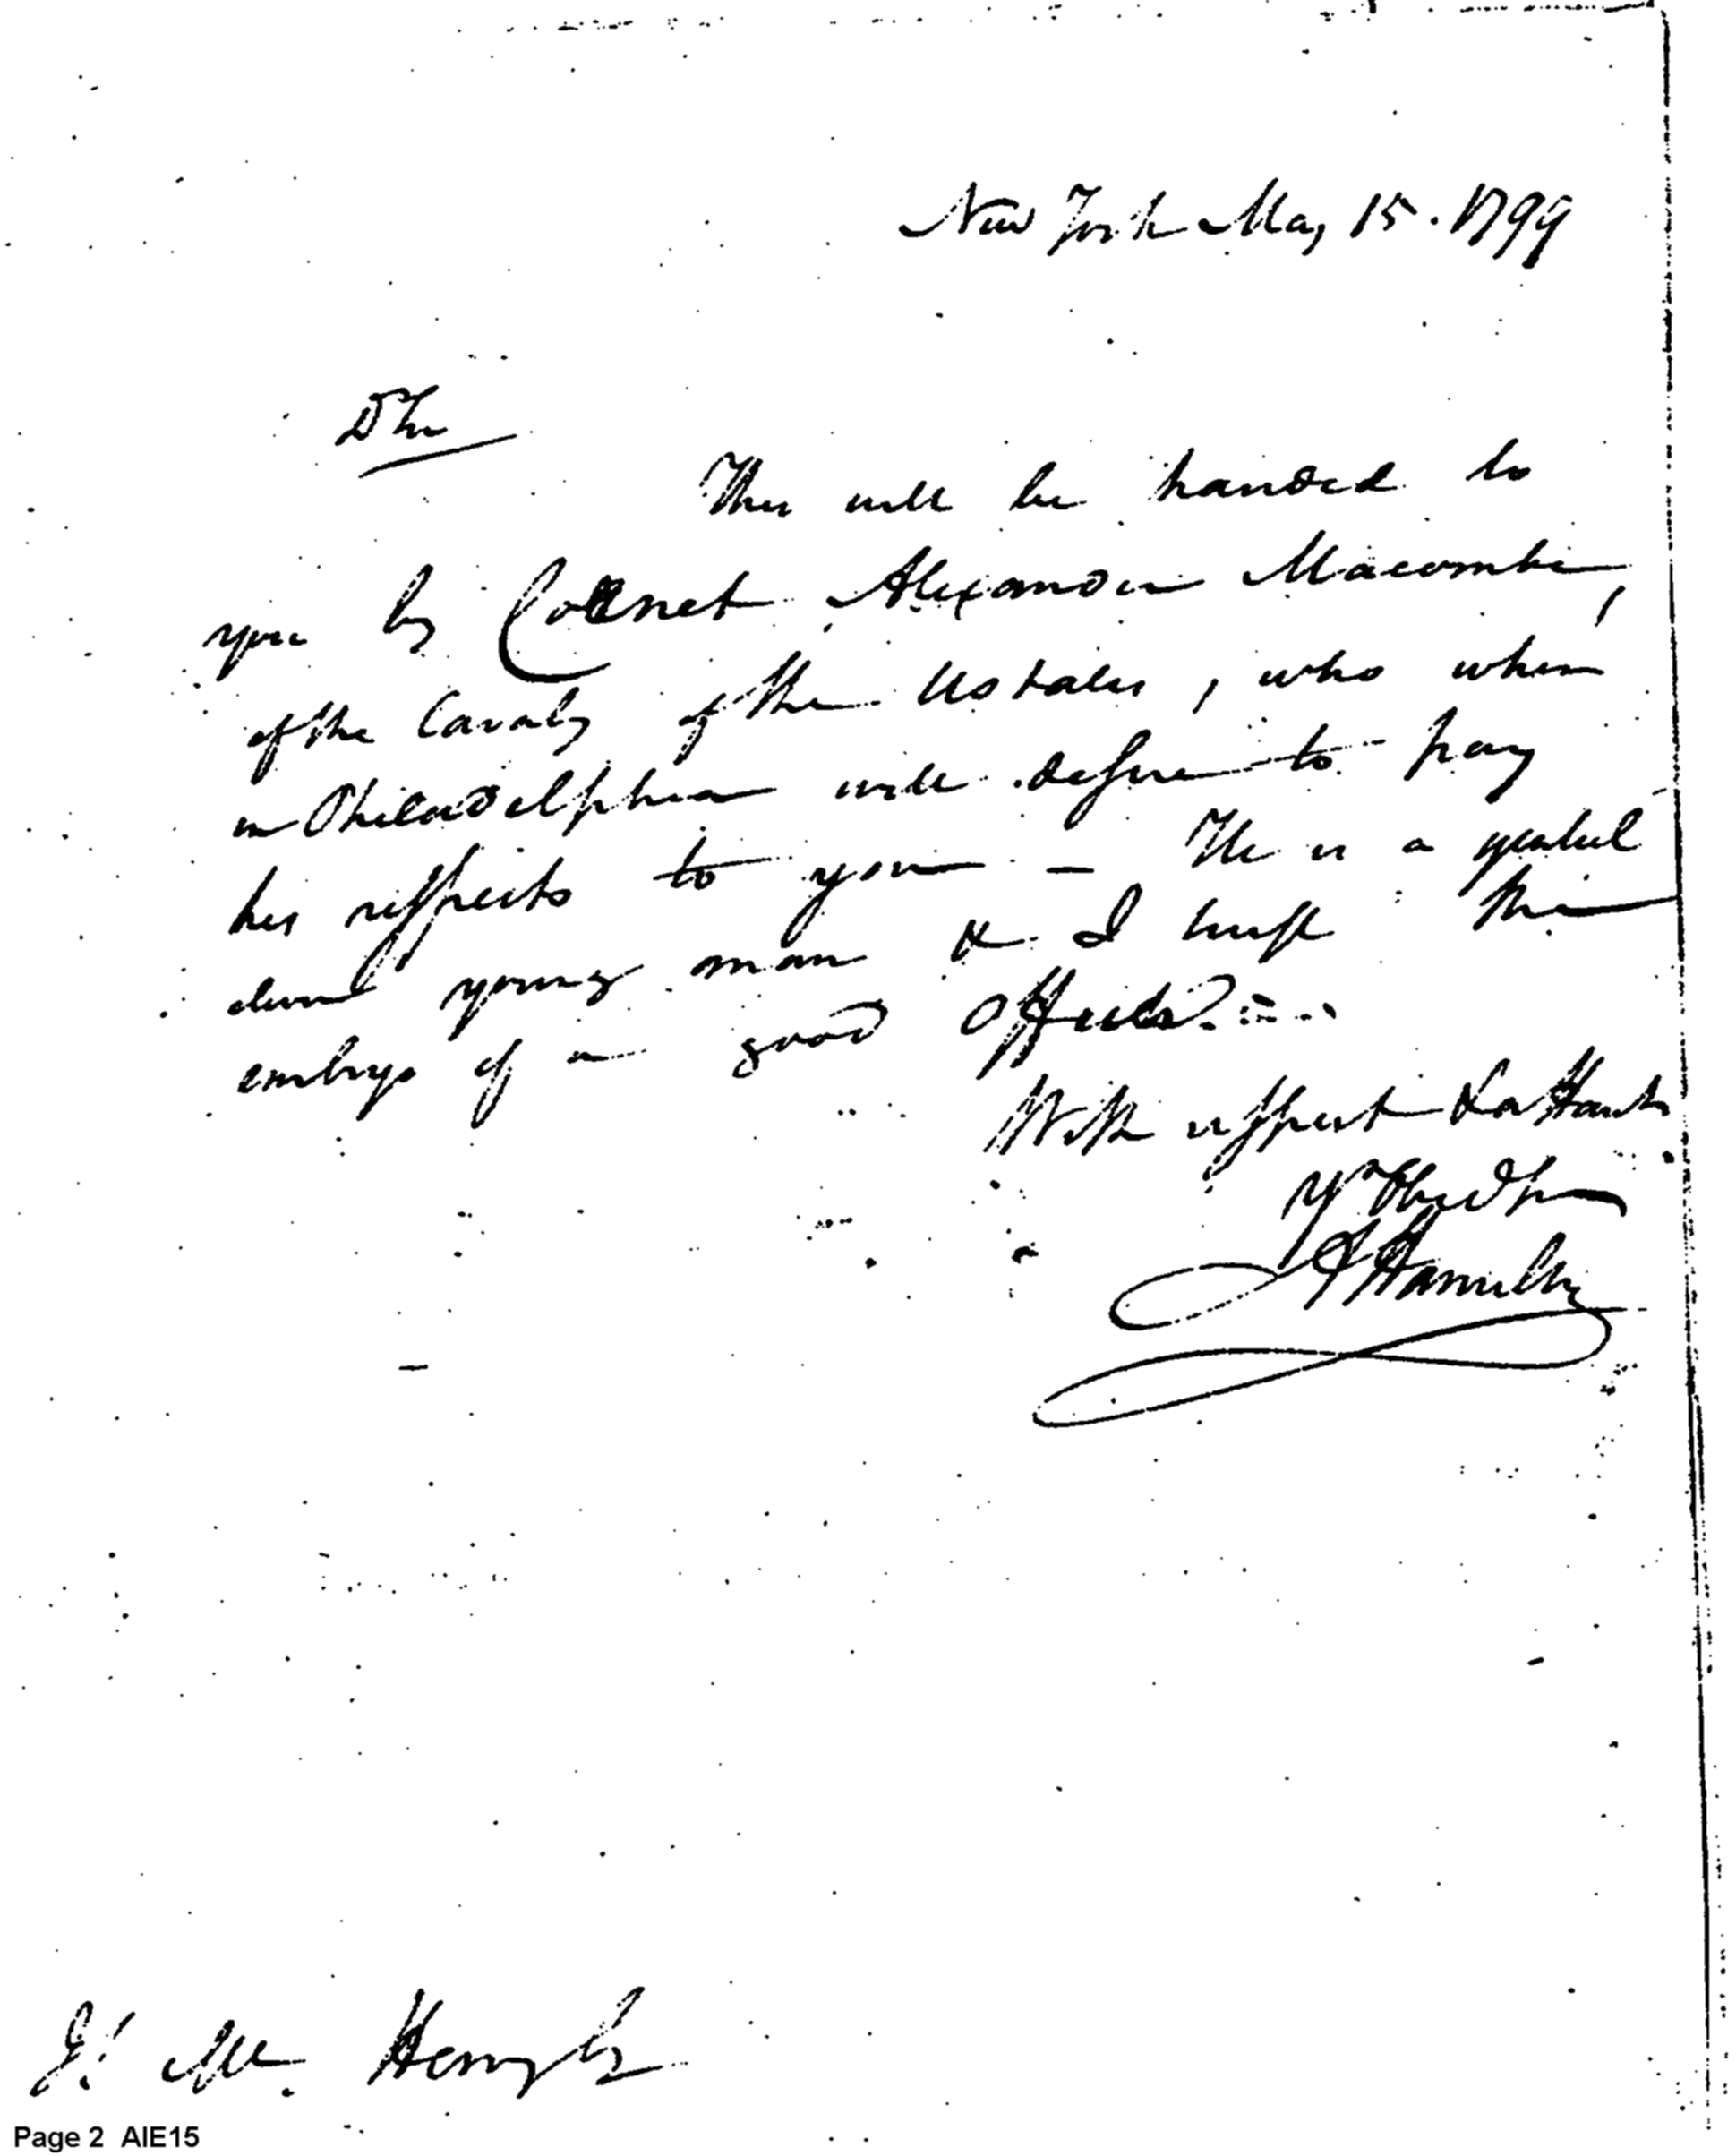 New York May 15. 1799
D Sir
This will be handed to
you by Cornet Alexander Macomber,
of the Cavalry of the UStates, who when
in Philadelphia will desire to pay
his respects to you — He is a genteel
clever young man & I trust the
embryo of a good Officer.
With respect &
Yr Obed Sr
A Hamilton
J. Mc. Henry
Page 2 AIE15